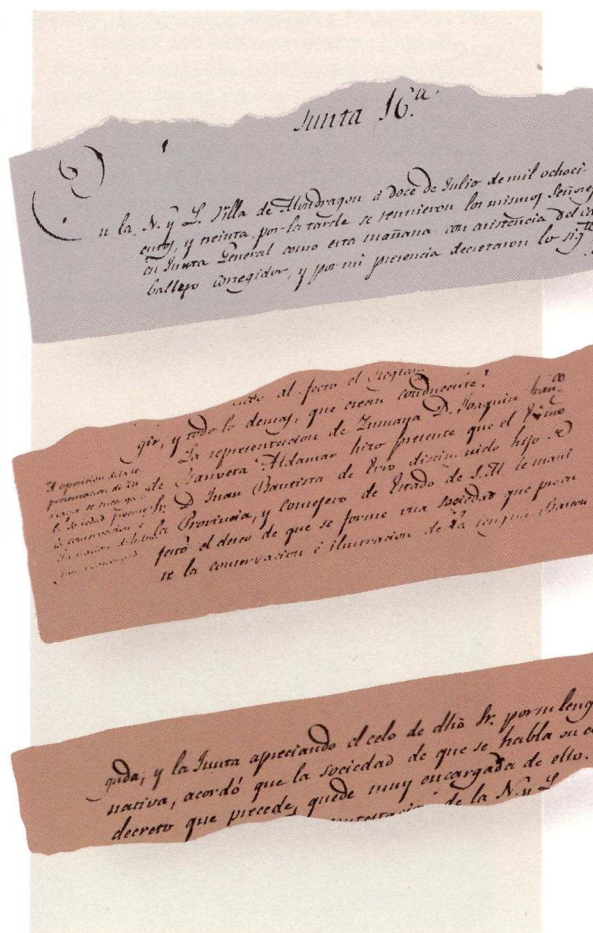 Junta 16.ª
En la N. y L. Villa de Mondragon á doce de Julio de mil ochoci
entos, y treinta, por la tarde se reunieron los mismos Señores
en Junta General como esta mañana con asistencia del Ca
ballero corregidor, y por mi presencia decretaron lo sigte
al
gir, y todo lo demas, que crean conducente.
La representacion de Zumaya D. Joaquin
de Barroeta Aldamar hizo presente que el Exmo
Sr. D. Juan Bautista de Erro distinguido hijo de
la Provincia, y consejero de Estado de S.M. le mani
festó el deseo de que se forme una sociedad que procu
re la conservacion é ilustracion de la lengua Bascon
gada, y la Junta apreciando el celo de dho Sr. por su leng
nativa, acordó que la sociedad de que se habla en el
decreto que precede, quede muy encargada de ello.
de la N. y L.